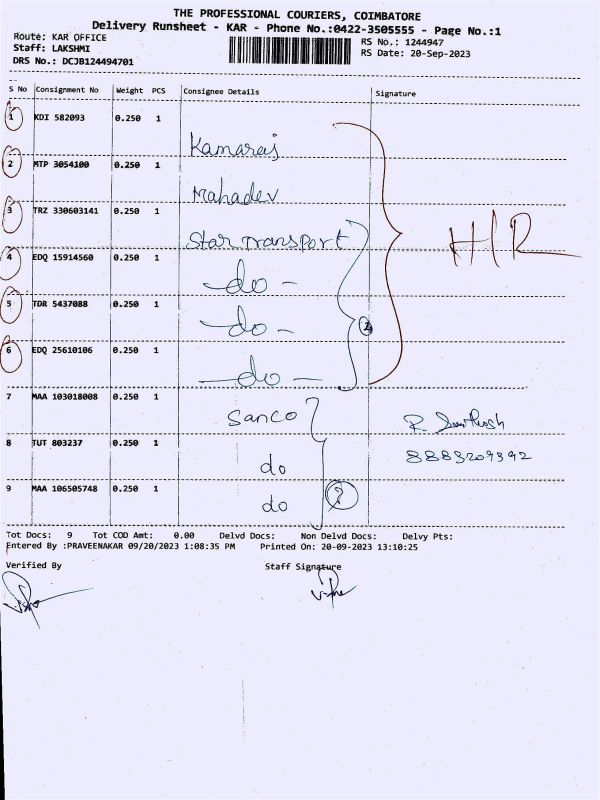 THE PROFESSIONAL COURIERS, COIMBATORE
Delivery Runsheet - KAR - Phone No.:0422-3505555 - Page No.:1
Route: KAR OFFICE
RS No.: 1244947
Staff: LAKSHMI
RS Date: 20-Sep-2023
DRS No.: DCJB124494701
S No Consignment No Weight PCS Consignee Details Signature
1 KDI 582093 0.250 1 Kamaraj
2 MTP 3054100 0.250 1 Mahadev
3 TRZ 330603141 0.250 1 Star Transport
H/R
4 EDQ 15914560 0.250 1 -do-
5 TDR 5437088 0.250 1 -do-
6 EDQ 25610106 0.250 1 -do-
7 MAA 103018008 0.250 1 Sanco
8 TUT 803237 0.250 1 do 8883209392
9 MAA 106505748 0.250 1 do
Tot Docs: 9 Tot COD Amt: 0.00 Delvd Docs: Non Delvd Docs: Delvy Pts:
Entered By :PRAVEENAKAR 09/20/2023 1:08:35 PM Printed On: 20-09-2023 13:10:25
Verified By Staff Signature